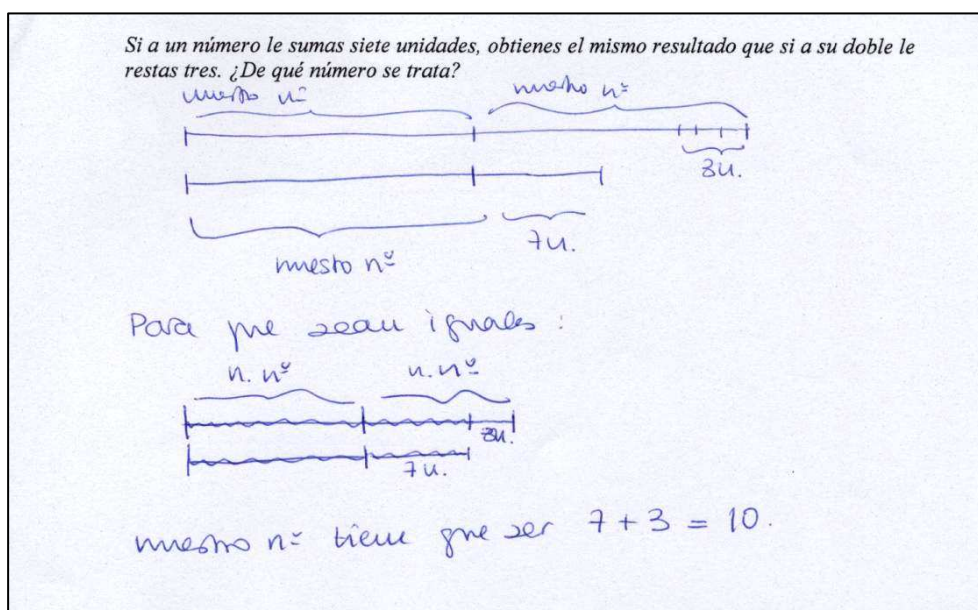 Si a un número le sumas siete unidades, obtienes el mismo resultado que si a su doble le
restas tres. ¿De qué número se trata?
nuestro nº nuestro nº
3u.
7u.
nuestro nº
Para que sean iguales:
n. nº n. nº
3u.
7u.
nuestro nº tiene que ser 7 + 3 = 10.